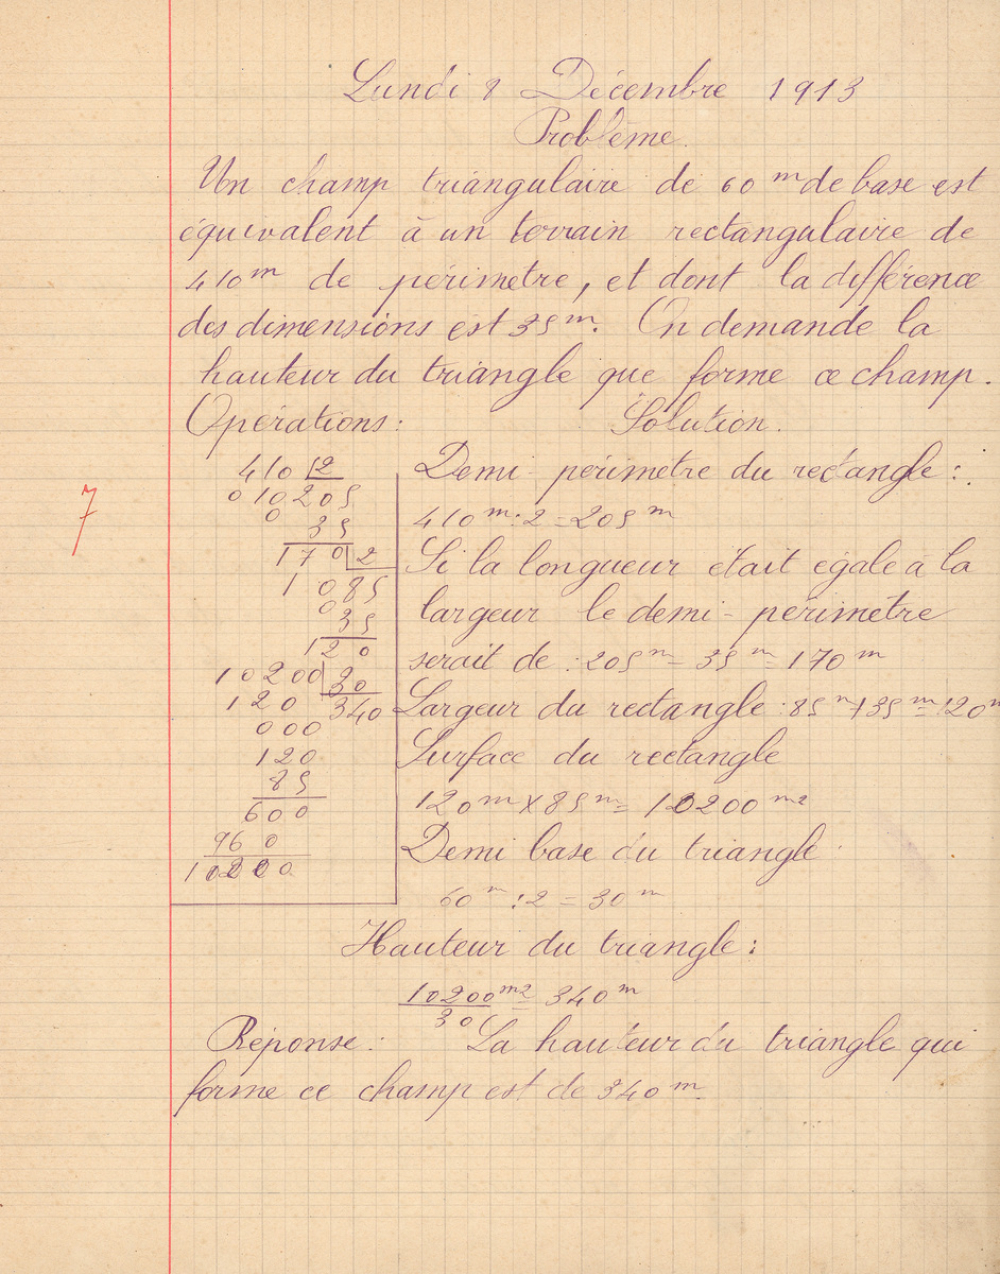 Lundi 8 Décembre 1913
Problème.
Un champ triangulaire de 60 m de base est
équivalent à un terrain rectangulaire de
410 m de périmètre, et dont la différence
des dimensions est 35 m. On demande la
hauteur du triangle que forme ce champ.
Opérations : Solution.
7
410 2
010 205
0
35
170 2
10 85
0
35
120
10200 30
120 340
000
120
85
600
960
10200
Demi périmètre du rectangle :
410 m : 2 = 205 m
Si la longueur était égale à la
largeur le demi-périmètre
serait de : 205 m - 35 m = 170 m
Largeur du rectangle : 85 m + 35 m = 120 m
Surface du rectangle
120 m x 85 m = 10200 m2
Demi base du triangle
60 m : 2 = 30 m
Hauteur du triangle :
10200 m2 = 340 m
30
Réponse : La hauteur du triangle qui
forme ce champ est de 340 m.